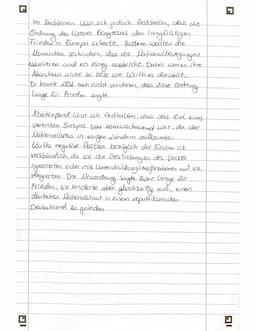 Im Nachhinein lässt sich jedoch feststellen, dass die
Ordnung des Wiener Kongresses den langfristigen
Frieden in Europa sicherte. Zudem wollten die
Monarchen verhindern, dass die Nationalbewegungen
eskalieren und ein Krieg ausbricht. Daher waren ihre
Absichten nicht so böse wie Wirth es darstellt.
Er konnte also noch nicht verstehen, dass diese Ordnung
lange für Frieden sorgte.
Abschließend lässt sich festhalten, dass das Ziel eines
vereinten Europas sehr vorausschauend war, da der
Nationalismus in einigen Ländern aufkeimte.
Wirths negative Position bezüglich der Fürsten ist
verständlich, da sie die Bestrebungen des Volkes
ignorierten oder mit Unterdrückungsmaßnahmen auf sie
reagierten. Die Neuordnung sorgte zwar lange für
Frieden, sie hinderte aber gleichzeitig auch, einen
deutschen Nationalstaat in einem republikanischen
Deutschland zu gründen.